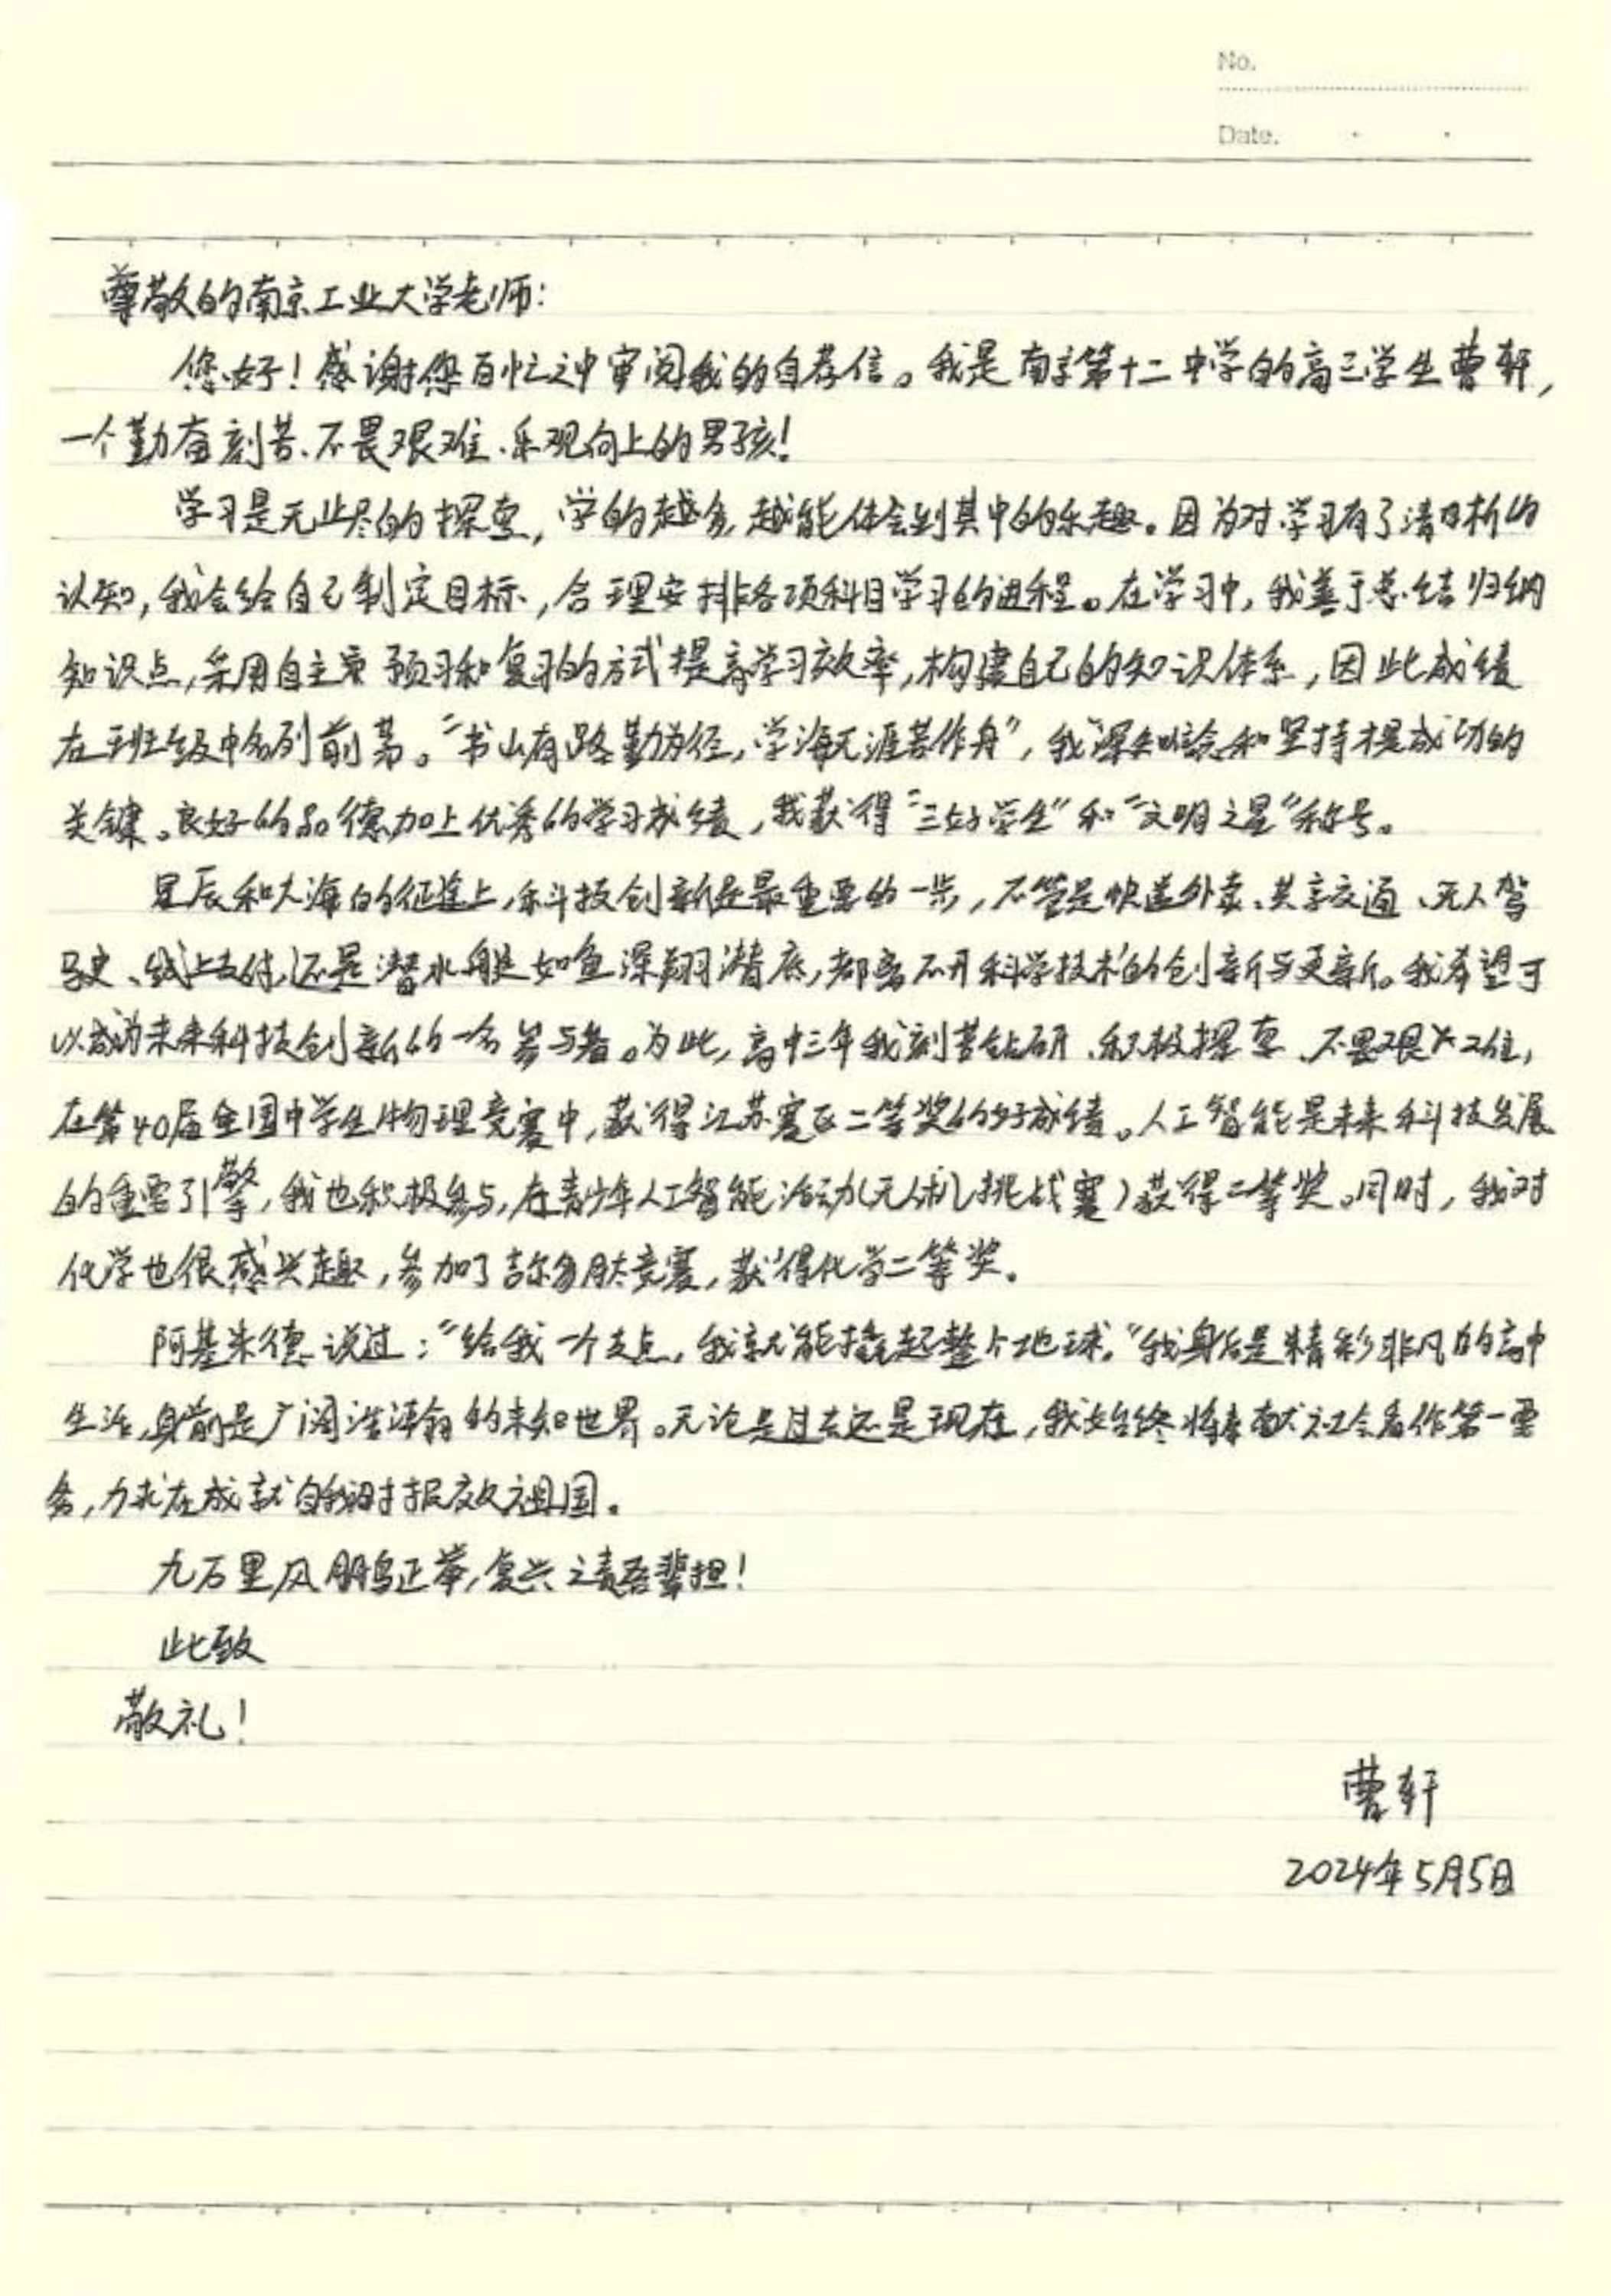 No.
Date.
尊敬的南京工业大学老师：
您好！感谢您百忙之中审阅我的自荐信。我是南京第十二中学的高三学生曹轩，
一个勤奋刻苦、不畏艰难、乐观向上的男孩！
学习是无止尽的探索，学的越多，越能体会到其中的乐趣。因为对学习有了清晰的
认知，我会给自己制定目标，合理安排各项科目学习的进程。在学习中，我善于总结归纳
知识点，采用自主预习和复习的方式提高学习效率，构建自己的知识体系，因此成绩
在班级中名列前茅。“书山有路勤为径，学海无涯苦作舟”，我深知和坚持才是成功的
关键。良好的品德加上优秀的学习成绩，我获得“三好学生”和“文明之星”称号。
星辰和大海的征途上，科技创新是最重要的一步，不管是快递外卖、共享交通、无人驾
驶、线上支付，还是潜水艇如鱼深翔潜底，都离不开科学技术的创新与更新。我希望可
以成为未来科技创新的一名参与者。为此，高中三年我刻苦钻研、积极探索、不畏艰难，
在第40届全国中学生物理竞赛中，获得江苏赛区二等奖的好成绩。人工智能是未来科技发展
的重要引擎，我也积极参与，在青少年人工智能活动（无人机挑战赛）获得二等奖。同时，我对
化学也很感兴趣，参加了吉尔多肽竞赛，获得化学二等奖。
阿基米德说过：“给我一个支点，我就能撬起整个地球。”我身后是精彩非凡的高中
生活，身前是广阔浩瀚的未知世界。无论是过去还是现在，我始终将奉献社会看作第一要
务，力求在成就自我时报效祖国。
九万里风鹏正举，复兴之责吾辈担！
此致
敬礼！
曹轩
2024年5月5日